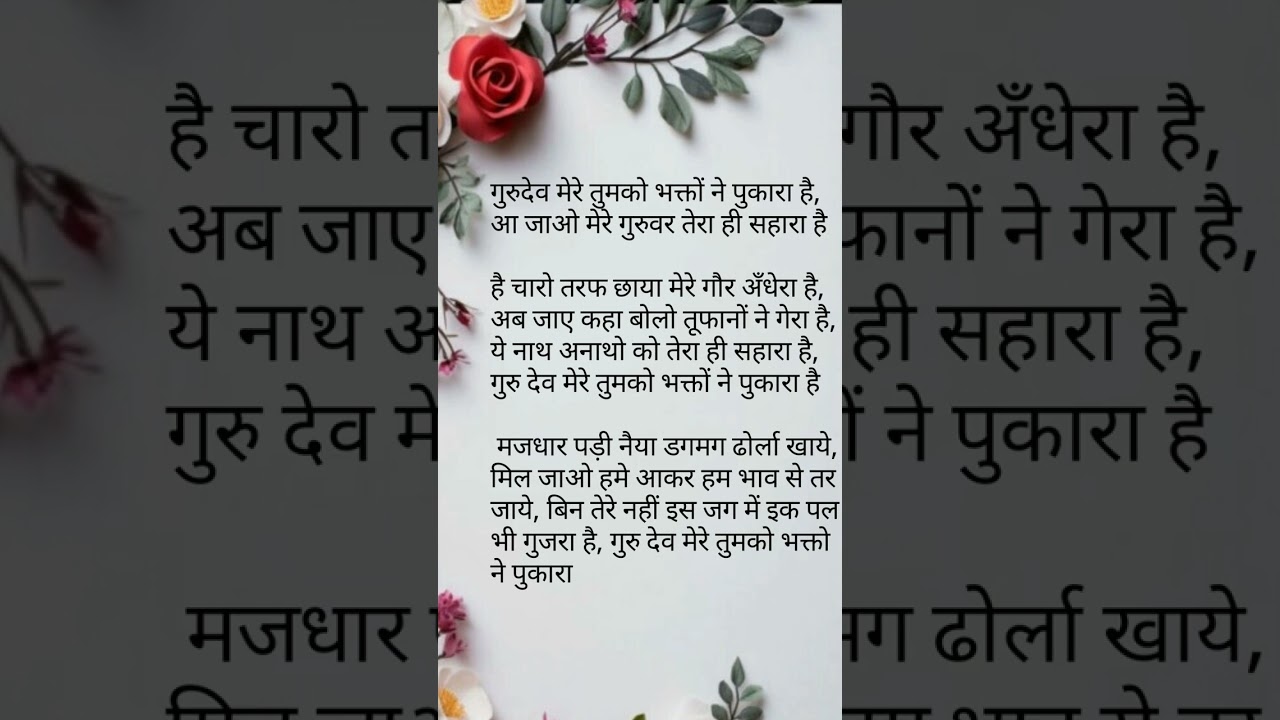 गुरुदेव मेरे तुमको भक्तों ने पुकारा है,
आ जाओ मेरे गुरुवर तेरा ही सहारा है
है चारो तरफ छाया मेरे गौर अँधेरा है,
अब जाए कहा बोलो तूफानों ने गेरा है,
ये नाथ अनाथो को तेरा ही सहारा है,
गुरु देव मेरे तुमको भक्तों ने पुकारा है
मजधार पड़ी नैया डगमग ढोर्ला खाये,
मिल जाओ हमे आकर हम भाव से तर
जाये, बिन तेरे नहीं इस जग में इक पल
भी गुजरा है, गुरु देव मेरे तुमको भक्तो
ने पुकारा